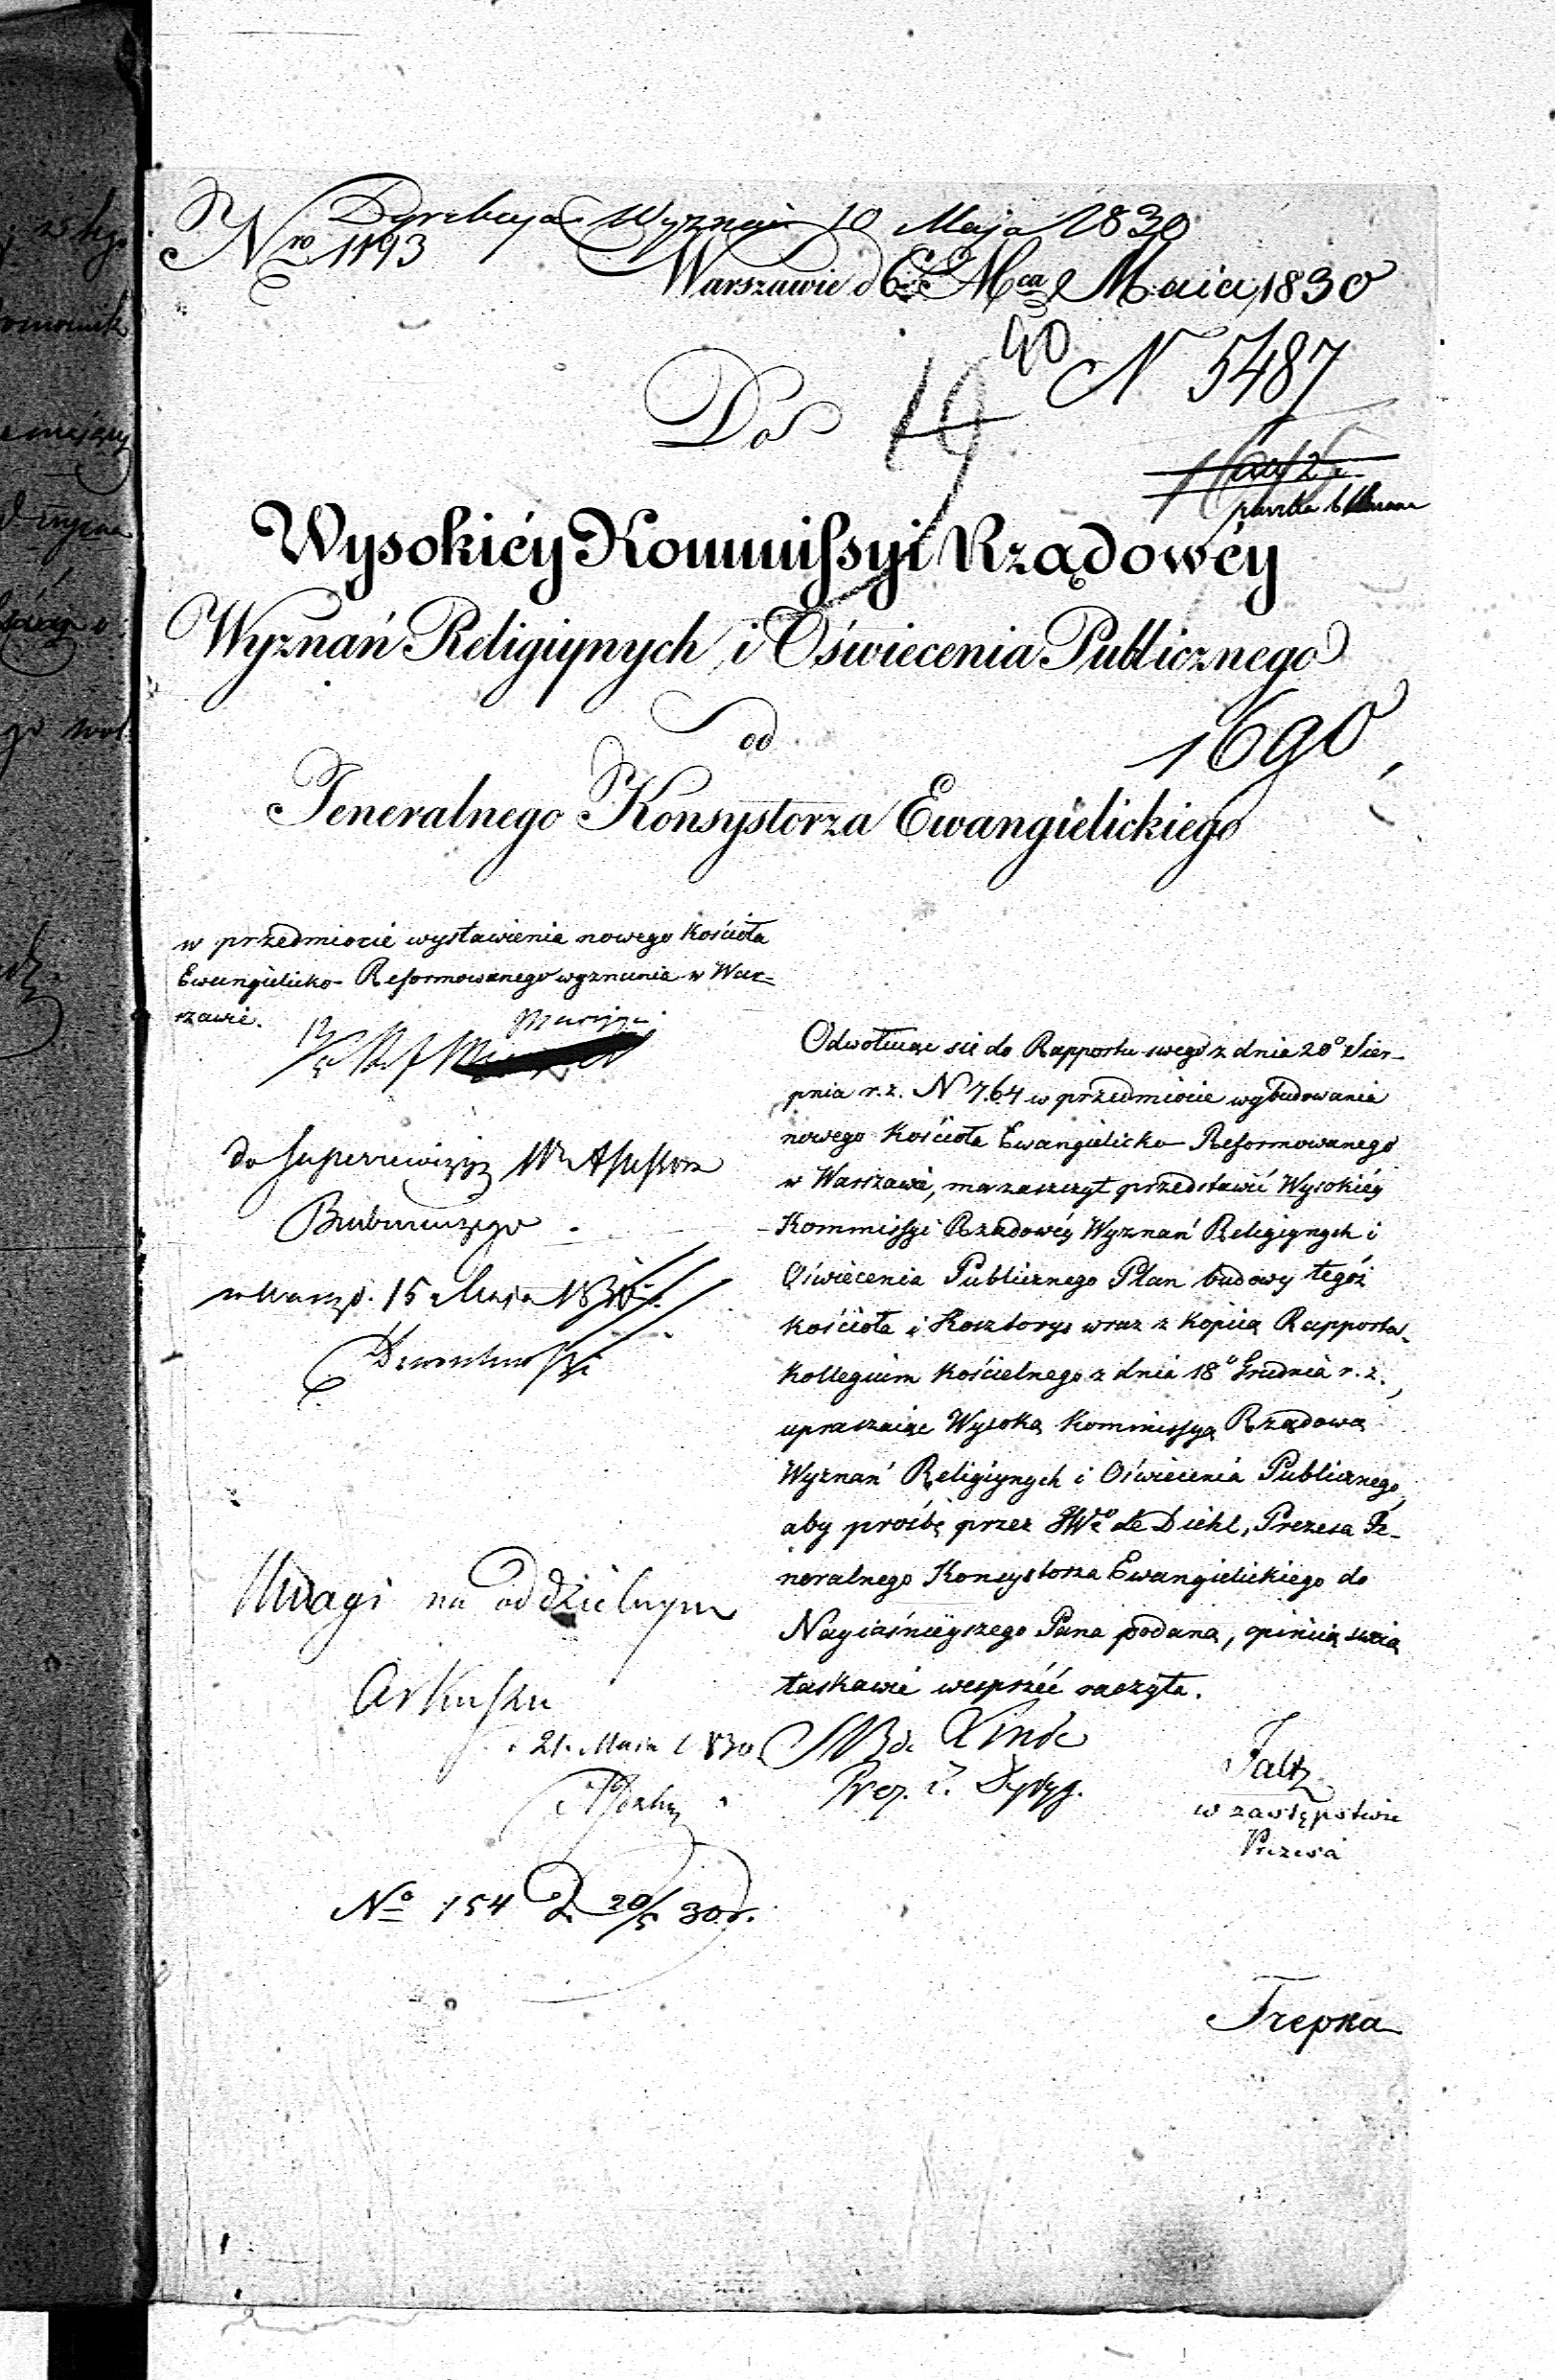 Dyrekcya Wyznań 10 Maja 1830
Nro 1193
Warszawie d 6 Mca Maia 1830
40
N 5487
Do
19
Wysokiéy Kommissyi Rządowéy
Wyznań Religiynych i Oświecenia Publicznego
od
1690
Jeneralnego Konsystorza Ewangielickiego
w przedmiocie wystawienia nowego Kościoła
Ewangielicko-Reformowanego wyznania w War=
szawie.
Odwołuiąc się do Rapportu swego z dnia 20o Sier-
pnia r.z. N 764 w przedmiocie wybudowania
nowego Kościoła Ewangielicko-Reformowanego
w Warszawie, ma zaszczyt przedstawić Wysokiéy
Kommissyi Rządowéy Wyznań Religiynych i
Oświecenia Publicznego Plan budowy tegóż
kościoła i Kosztorys wraz z kopiią Rapportu
Kollegium Kościelnego z dnia 18o Grudnia r. z.,
upraszaiąc Wysoką Kommissyą Rządową
Wyznań Religiynych i Oświecenia Publicznego,
aby prośbę przez JWo de Diehl, Prezesa Je-
neralnego Konsystorza Ewangielickiego do
Nayiaśnieyszego Pana podaną, opiniią swoią
łaskawie wesprzéć raczyła.
do Superrewizyi W Assessora
w Warsz. 15 Maja 1830
Uwagi na oddzielnym
Arkuszu
21. Maia 1830
Linde
Faltz
w zastępstwie
Prezesa
No 154 D. 20/5 30 r.
Trepka